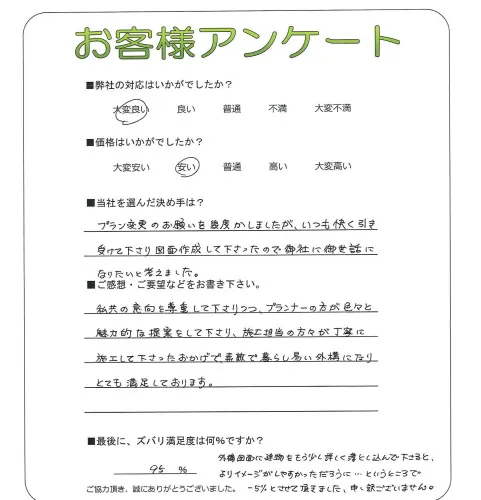 お客様アンケート
■弊社の対応はいかがでしたか？
大変良い 良い 普通 不満 大変不満
■価格はいかがでしたか？
大変安い 安い 普通 高い 大変高い
■当社を選んだ決め手は？
プラン変更のお願いを幾度かしましたが、いつも快く引き
受けて下さり図面作成して下さったので御社に御世話に
なりたいと考えました。
■ご感想・ご要望などをお書き下さい。
私共の意向を尊重して下さりつつ、プランナーの方が色々と
魅力的な提案をして下さり、施工担当の方々が丁寧に
施工して下さったおかげで、素敵で暮らし易い外構になり
とても満足しております。
■最後に、ズバリ満足度は何％ですか？
95 ％
外構図面に建物をもう少し詳しく落とし込んで下さると、
よりイメージがしやすかっただろうに…というところで
-5%とさせて頂きました、申し訳ございません。
ご協力頂き、誠にありがとうございました。